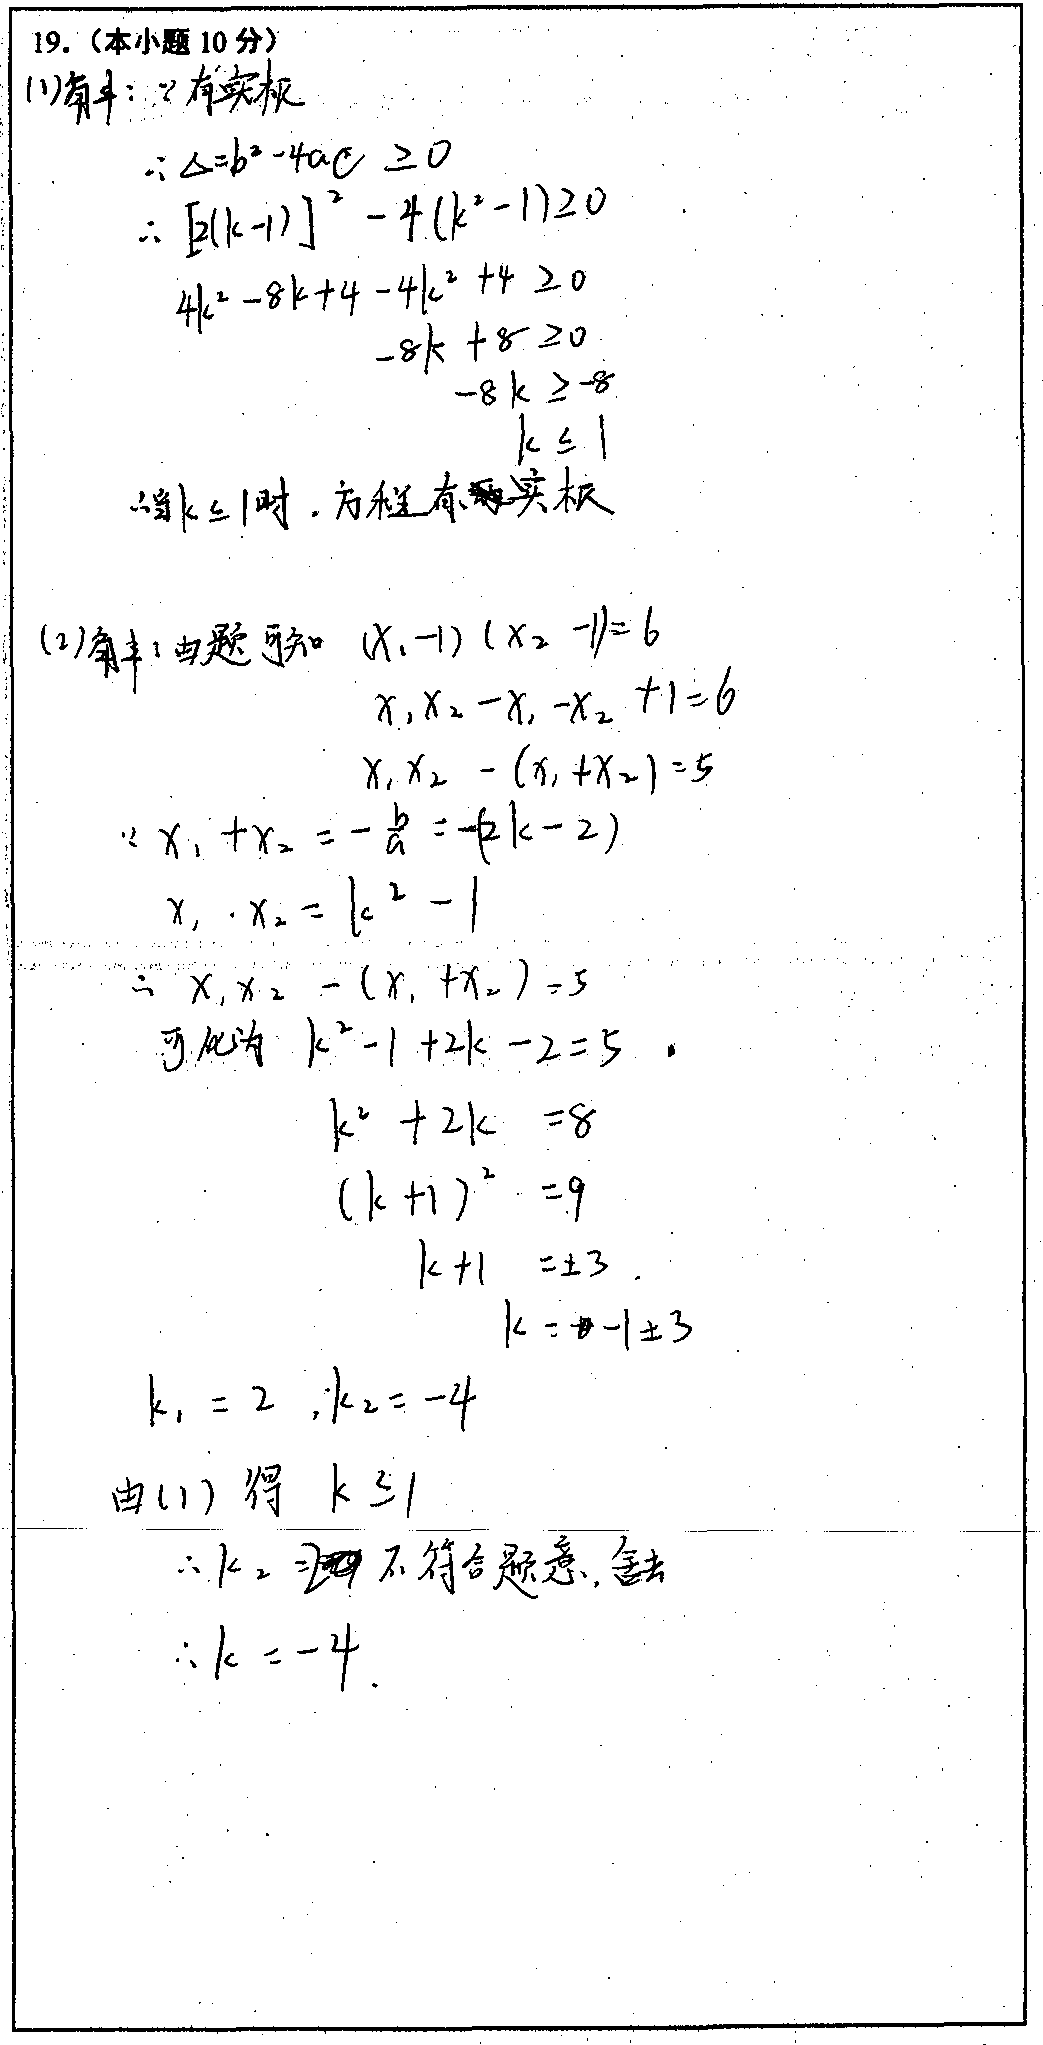 19.（本小题 10 分）
(1)解：∵ 有实根
∴ △=b²-4ac ≥0
∴ [2(k-1)]² -4(k²-1)≥0
4k²-8k+4-4k²+4 ≥0
-8k+8≥0
-8k ≥-8
k ≤ 1
∴当k≤1时．方程有实根
(2)解：由题可知 (x₁-1)(x₂-1)=6
x₁x₂-x₁-x₂+1=6
x₁x₂ -(x₁+x₂)=5
∵ x₁+x₂=-b/a=-(2k-2)
x₁·x₂=k²-1
∴ x₁x₂-(x₁+x₂)=5
可化为 k²-1+2k-2=5 .
k²+2k =8
(k+1)² =9
k+1 =±3.
k=-1±3
k₁=2 , k₂=-4
由(1)得 k≤1
∴k₂=2 不符合题意,舍去
∴k=-4.